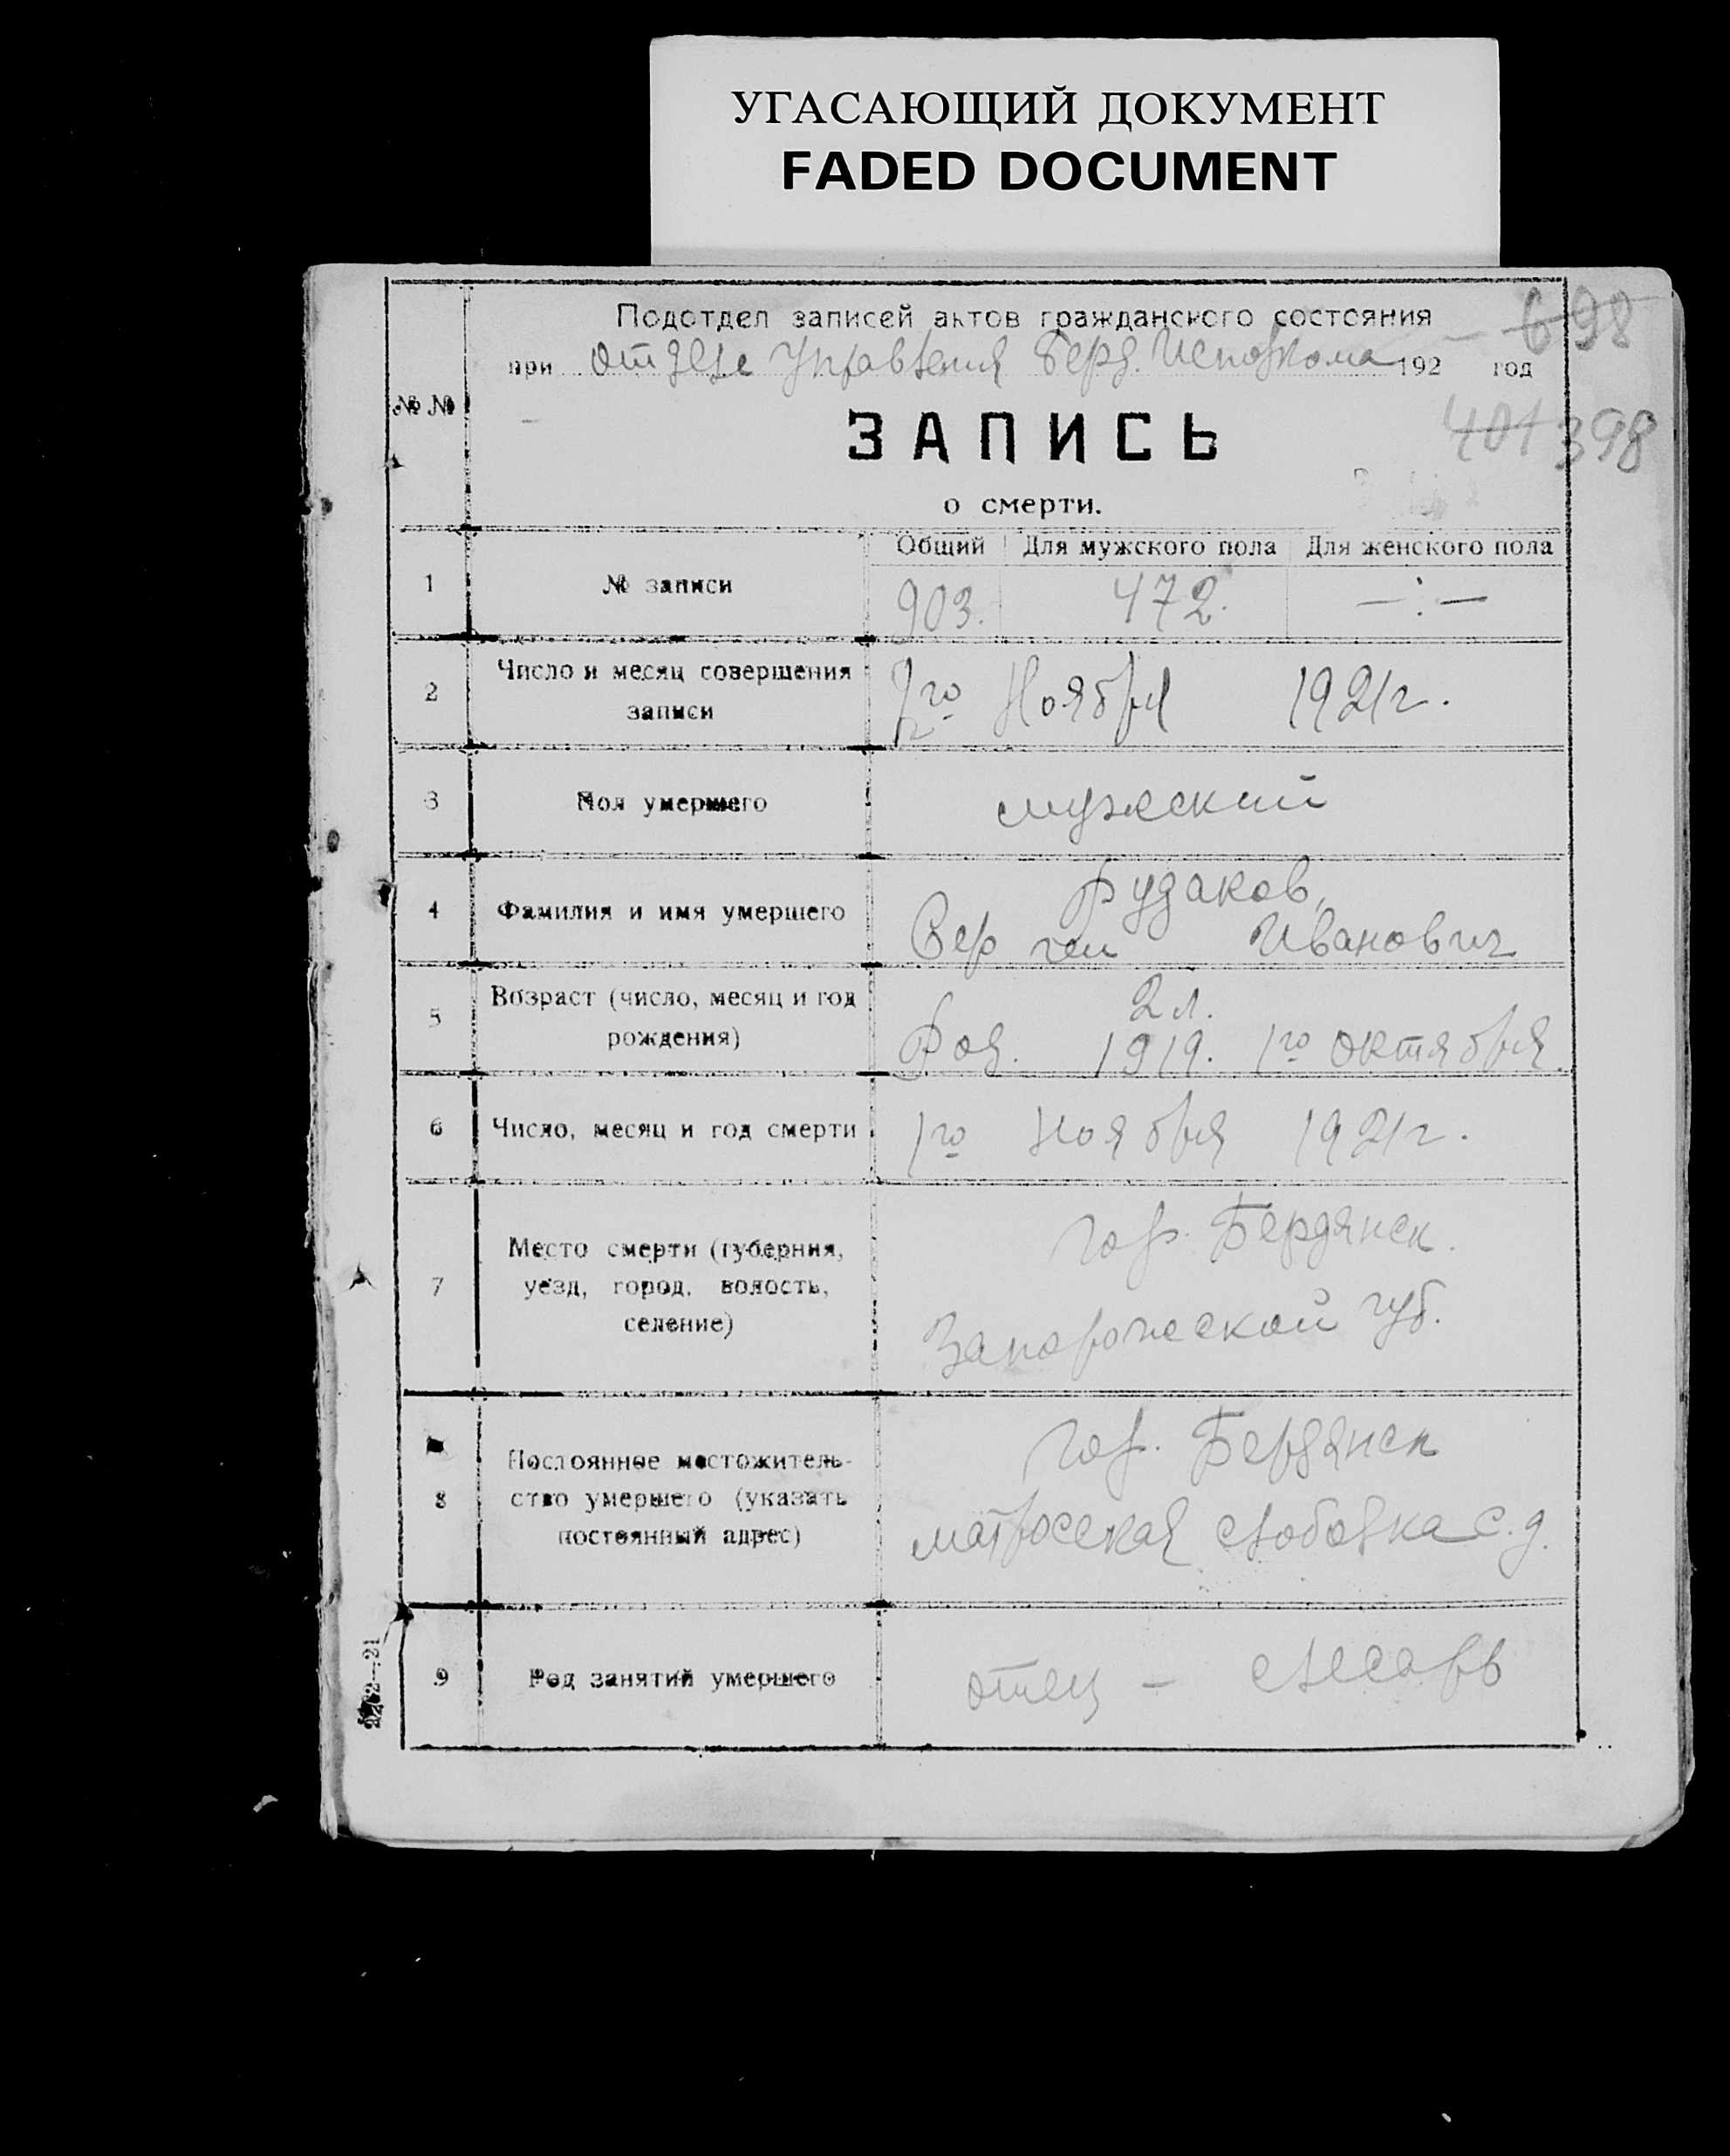 УГАСАЮЩИЙ ДОКУМЕНТ
FADED DOCUMENT
Подотдел записей актов гражданского состояния
при отделе Управления Берд. Исполкома 192 год
698
№ №
ЗАПИСЬ
401 398
о смерти.
Общий Для мужского пола Для женского пола
1 № записи 903. 472. —:—
2 Число и месяц совершения
записи
9го Ноября 1921г.
3 Пол умершего мужеский
4 Фамилия и имя умершего
Рудаков,
Сергей Иванович
5 Возраст (число, месяц и год
рождения)
2 л.
Род. 1919. 1го октября.
6 Число, месяц и год смерти 1го Ноября 1921г.
7 Место смерти (губерния,
уезд, город, волость,
селение)
гор. Бердянск.
Запорожской губ.
8 Постоянное местожитель-
ство умершего (указать
постоянный адрес)
гор. Бердянск
матросская слободка с. д.
9 Род занятий умершего отец — слесарь